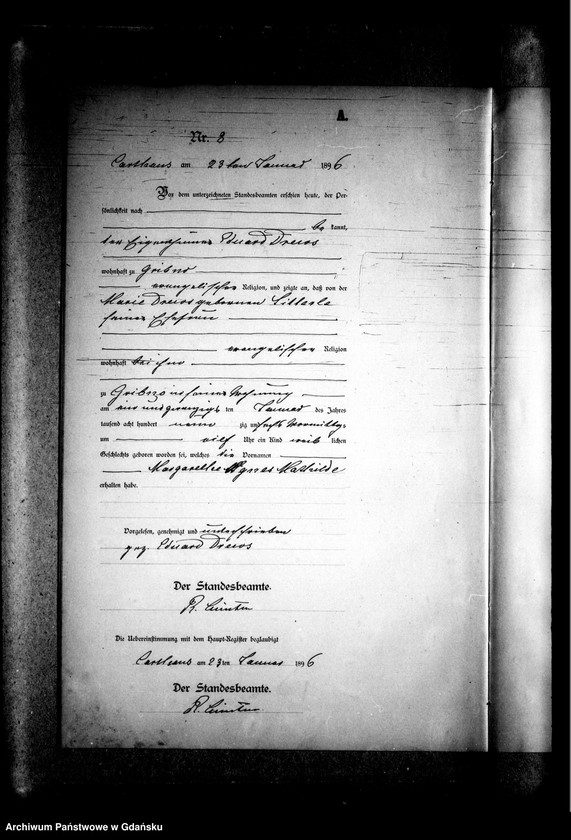 A.
Nr. 8
Carthaus am 23ten Januar 1896
Vor dem unterzeichneten Standesbeamten erschien heute, der Per-
sönlichkeit nach
be kannt,
der Eigenthümer Eduard Drews
wohnhaft zu Gribno
evangelischer Religion, und zeigte an, daß von der
Marie Drews geborenen
seiner Ehefrau
evangelischer Religion
wohnhaft bei ihm
zu in seiner Wohnung
am ein und zwanzigs ten Januar des Jahres
tausend acht hundert neun zig und sechs Vormittags
um elf Uhr ein Kind weib lichen
Geschlechts geboren worden sei, welches die Vornamen
Margarethe Agnes Mathilde
erhalten habe.
Vorgelesen, genehmigt und unterschrieben
gez. Eduard Drews
Der Standesbeamte.
R.
Die Uebereinstimmung mit dem Haupt-Register beglaubigt
Carthaus am 23ten Januar 1896
Der Standesbeamte.
R.
Archiwum Państwowe w Gdańsku